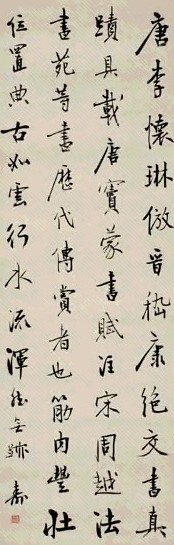 唐李懷琳倣晉嵇康絕交書真
蹟具載唐竇蒙書賦注宋周越法
書苑等書歷代傳賞者也筋肉豐壯
位置典古如雲行水流渾然無跡 嘉